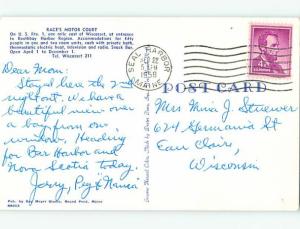 RACE'S MOTOR COURT
On U. S. Rte. 1, one mile east of Wiscasset, at entrance
to Boothbay Harbor Region. Accommodations for fifty
people in one and two room units, each with private bath,
thermostatic electric heat, television and radio. Snack Bar
Open April 1 to December 1.
Tel. Wiscasset 211
Dear Mom:
Stayed here the 2nd
night out. We have a
beautiful view over
a bay from our
window. Heading
for Bar Harbor and
Nova Scotia today.
Jerry, Peg &
SEAL HARBOR
SEP 12
5 PM
1958
MAINE
4¢
POST CARD
Mrs Minia J. Struever
624 Germania St
Eau Claire,
Wisconsin